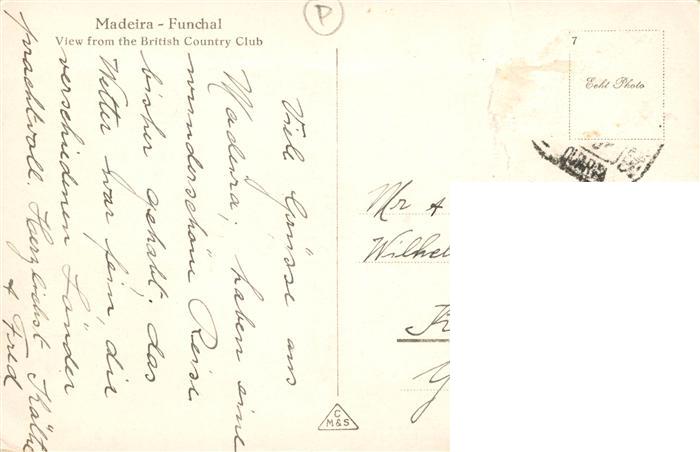 Madeira - Funchal
View from the British Country Club
P
Viele Grüsse aus
Madeira, haben eine
wunderschöne Reise
bisher gehabt. das
Wetter war fein, die
verschiedenen Länder
prachtvoll. Herzlichst Käthe
& Fred
7
Echt Photo
Mr &
Wilhel
C
M&S